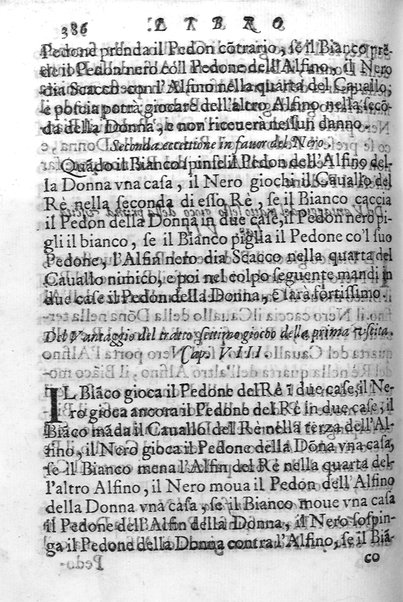 386 LIBRO
Pedone prenda il Pedon cõtrario, se il Bianco prẽ
de il Pedon nero co'l Pedone dell'Alfino, il Nero
dia Scacco con l'Alfino nella quarta del Cauallo,
e poscia potrà giocare dell'altro Alfino nella secõ
da della Donna, e non riceuerà nessun danno.
Seconda eccettione in fauor del Nero.
Quãdo il Biãco spinse il Pedone dell'Alfino del-
la Donna vna casa, il Nero giochi il Cauallo del
Rè nella seconda di esso Rè, se il Bianco caccia
il Pedon della Donna in due case, il Pedon nero pi
gli il bianco, se il Biãco piglia il Pedone co'l suo
Pedone, l'Alfin nero dia Scacco nella quarta del
Cauallo nimico, e poi nel colpo seguente mandi in
due case il Pedon della Donna, e sarà fortissimo.
Del Vantaggio del tratto settimo giocho della prima vscita.
Cap. VIII.
IL Biãco gioca il Pedone del Rè ĩ due case, il Ne-
ro gioca ancora il Pedone del Rè in due case, il
Biãco mãda il Cauallo del Rè nella terza dell'Al-
fino, il Nero gioca il Pedone della Dõna vna casa,
se il Bianco mena l'Alfin del Rè nella quarta del-
l'altro Alfino, il Nero moua il Pedon dell'Alfino
della Donna vna casa, se il Bianco moue vna casa
il Pedone dell'Alfin della Donna, il Nero sospin-
ga il Pedone della Donna contra l'Alfino, se il Biã-
co